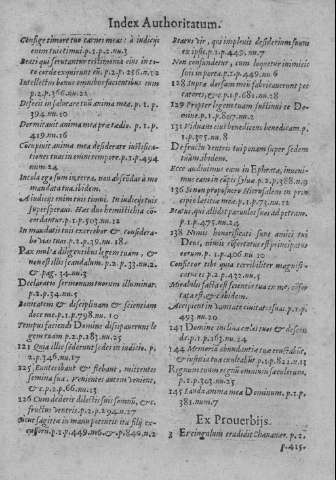 Index Authoritatum.
Confige timore tuo carnes meas: à iudicijs
enim tuis timui. p.1.p.2.nu.3
Beati qui scrutantur testimonia eius in to-
to corde exquirunt eū. p.2.p.256.n.12
Intellectus bonus omnibus facientibus eum
p.2.p.366.nu.21
Defecit in salutare tuū anima mea. p.1.p.
394.nu.10
Dormitauit anima mea præ tædio. p.1.p.
419.nu.16
Concupiuit anima mea desiderare iustificatio-
nes tuas in omni tempore. p.1.p.494
num.24
Incola ego sum in terra, non abscōdas à me
mandata tua. ibidem.
A iudicijs enim tuis timui. In iudicijs tuis
supersperaui. Hæc duo hemistichia co-
cordantur. p.1.p.503.nu.12
In mandatis tuis exercebor & considera-
bo vias tuas. p.2.p.39.nu.18
Pax multa diligentibus legem tuam, &
non est illis scandalum. p.2.p.33.nu.2
& pag.34.nu.3
Declaratio sermonum tuorum illuminat.
p.2.p.34.nu.5
Bonitatem & disciplinam & scientiam
doce me. p.1.p.798.nu.10
Tempus faciendi Domine dissipauerunt le
gem tuam. p.2.p.283.nu.25
121 Quia illic sederunt sedes in iudicio. p.
2.p.346.nu.17
125 Euntes ibant & flebant, mittentes
semina sua. Venientes autem venient,
&c. p.2.p.66.nu.13
126 Cum dederit dilectis suis somnū, &c.
fructus ventris. p.2.p.294.nu.27
Sicut sagittæ in manu potentis ita filij ex-
cussorū. p.2.p.449.n.6. & p.840.n.2
Beatus vir, qui impleuit desiderium suum
ex ipsis. p.2.p.449.nu.7
Non confundetur, cum loquetur inimicis
suis in porta. p.2.p.449.nu.6
128 Supra dorsum meū fabricauerunt pec
catores. p.2.p.681.nu.28
129 Propter legem tuam sustinui te Do-
mine. p.1.p.817.nu.9
131 Viduam eius benedicens benedicam. p.
1.p.375.nu.8
De fructu ventris tui ponam super sedem
tuam. ibidem.
Ecce audiuimus eam in Ephrata, inueni-
mus eam in cāpis siluæ. p.2.p.388.n.9
136 Si non proposuero Hierusalem in prin
cipio lætitiæ meæ. p.1.p.73.nu.12
Beatus, qui allidet paruulos suos ad petram.
p.1.p.475.nu.25
138 Nimis honorificati sunt amici tui
Deus, nimis cōfortatus est principatus
eorum. p.1.p.406.nu.10
Confitebor tibi quia terribiliter magnifi-
catus es. p.2.p.432.nu.5
Mirabilis facta est scientia tua ex me, cōfor
tata est, &c. ibidem.
Accipient in vanitate ciuitates suas. p.1.p.
493.nu.20
143 Domine inclina cælos tuos & descen
de. p.1.p.163.nu.24
144 Memoriā abundantiæ tuæ eructabūt,
& iustitia tua exultabūt. p.1.p.821.n.13
Regnum tuum regnū omnium sæculorum.
p.2.p.303.nu.25
145 Lauda anima mea Dominum. p.1.p.
381.num.7
Ex Prouerbijs.
3 Et cingulum tradidit Chananæo. p.2.
p.415.